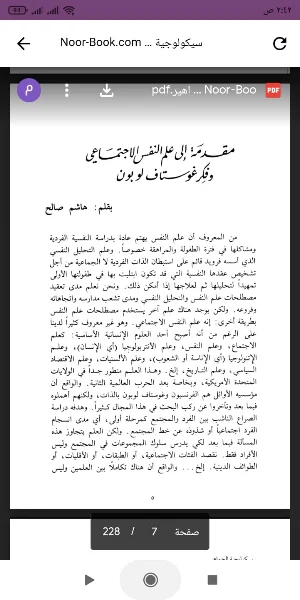 ٢:٤٢ ص
سيكولوجية ... Noor-Book.com
Noor-Boo ... اهير.pdf
PDF
مقدمة إلى علم النفس الاجتماعي
وفكر غوستاف لوبون
بقلم: هاشم صالح
من المعروف أن علم النفس يهتم عادة بدراسة النفسية الفردية
ومشاكلها في فترة الطفولة والمراهقة خصوصاً. وعلم التحليل النفسي
الذي أسسه فرويد قائم على استبطان الذات الفردية لا الجماعية من أجل
تشخيص عقدها النفسية التي قد تكون ابتليت بها في طفولتها الأولى
تمهيداً لتحليلها ثم لعلاجها إذا أمكن ذلك. ونحن نعلم مدى تعقيد
مصطلحات علم النفس والتحليل النفسي ومدى تشعب مدارسه واتجاهاته
وفروعه. ولكن يوجد هناك علم آخر يستخدم مصطلحات علم النفس
بطريقة أخرى: إنه علم النفس الاجتماعي. وهو غير معروف كثيراً لدينا
على الرغم من أنه أصبح أحد العلوم الإنسانية الأساسية: كعلم
الاجتماع، وعلم النفس، وعلم الأنتربولوجيا (أي الإنسان)، وعلم
الإتنولوجيا (أي الإناسة أو الشعوب)، وعلم الألسنيات، وعلم الاقتصاد
السياسي، وعلم التاريخ، إلخ. وهذا العلم متطور جداً في الولايات
المتحدة الأمريكية، وبخاصة بعد الحرب العالمية الثانية. والواقع أن
مؤسسيه الأوائل هم الفرنسيون وغوستاف لوبون بالذات، ولكنهم أهملوه
فيما بعد وتأخروا عن ركب البحث في هذا المجال كثيراً. وهدفه دراسة
الصراع الناشب بين الفرد والمجتمع كمرحلة أولى، أي مدى انسجام
الفرد اجتماعياً أو شذوذه عن خط المجتمع. ولكن العلم يتجاوز هذه
المسألة فيما بعد لكي يدرس سلوك المجموعات في المجتمع وليس
الأفراد فقط. نقصد الفئات الاجتماعية، أو الطبقات، أو الأقليات، أو
الطوائف الدينية. إلخ... والواقع أن هناك تكاملاً بين العلمين وليس
٥
صفحة 7 / 228